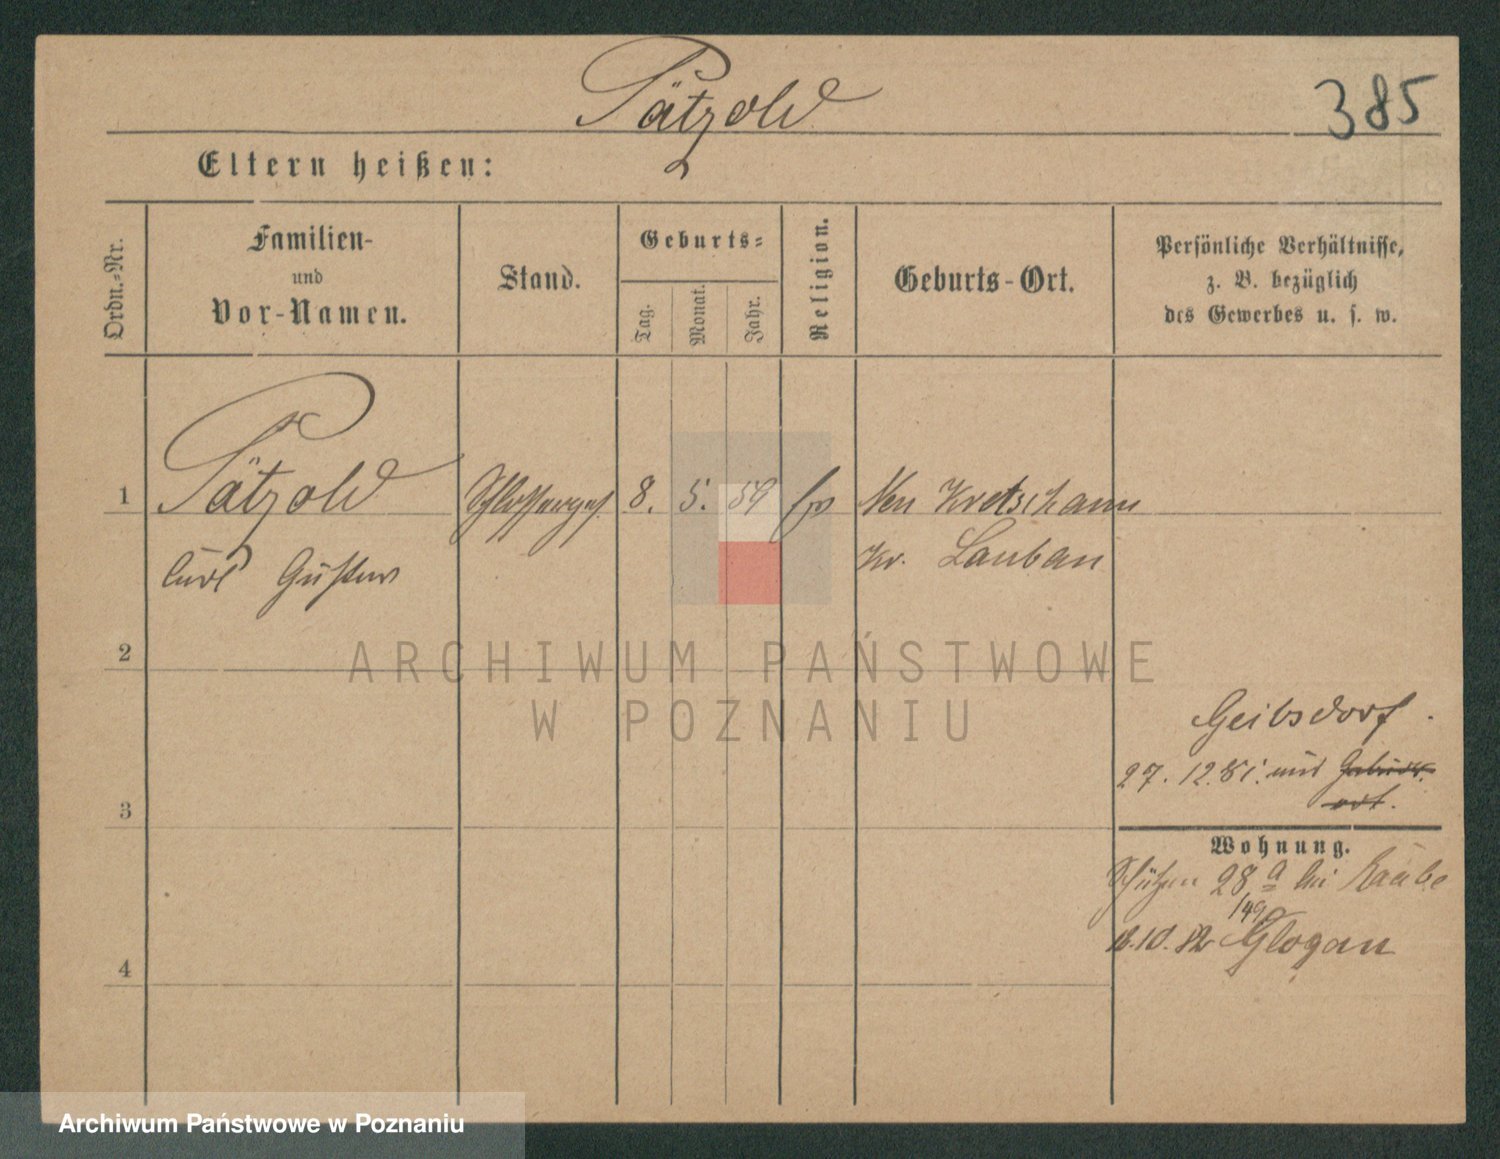 Pätzold
385
Eltern heißen:
Ordn.-Nr.
Familien-
und
Vor-Namen.
Stand.
Geburts-
Tag.
Monat.
Jahr.
Religion.
Geburts-Ort.
Persönliche Verhältnisse,
z. B. bezüglich
des Gewerbes u. s. w.
1
Pätzold
Schlosserges.
8.
5.
59
Neu Kretscham
Carl Gustav
Kr. Lauban
2
ARCHIWUM PAŃSTWOWE
W POZNANIU
Geibsdorf.
27. 12. 81.
3
Wohnung.
Schützen 28 a bei Raabe
4
10. 82 Glogau
Archiwum Państwowe w Poznaniu